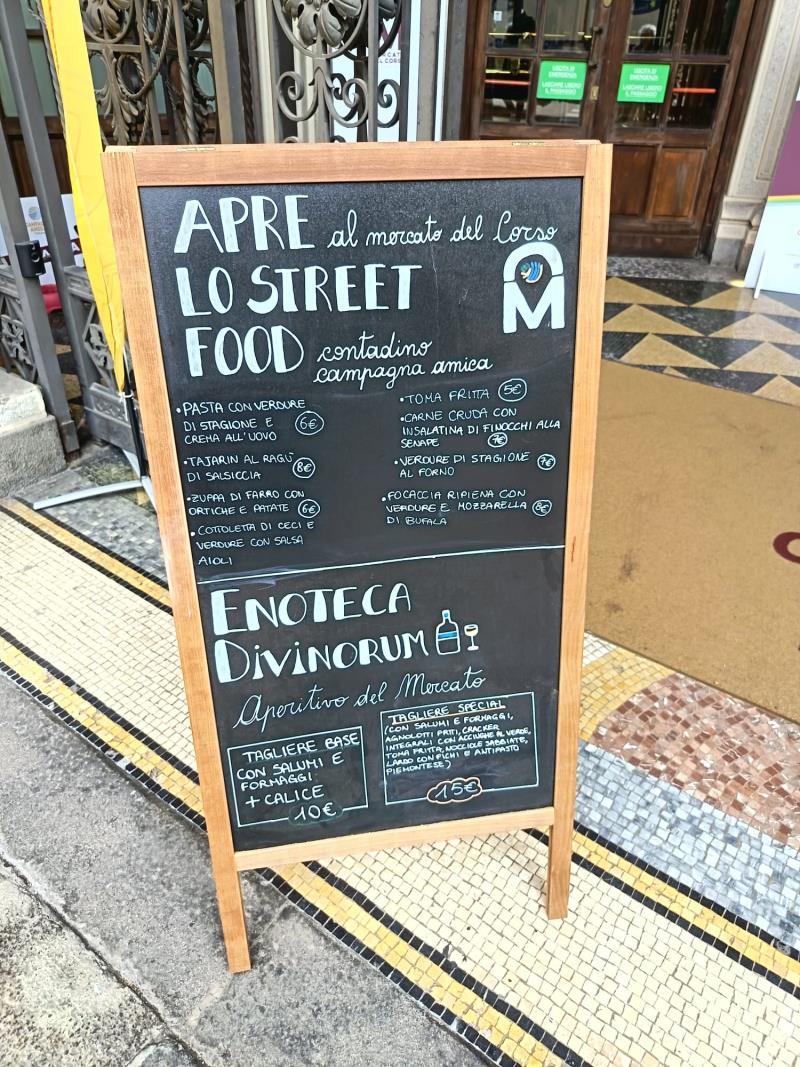 USCITA DI
EMERGENZA
LASCIARE LIBERO
IL PASSAGGIO
USCITA DI
EMERGENZA
LASCIARE LIBERO
IL PASSAGGIO
APRE al mercato del Corso
LO STREET
FOOD contadino
campagna amica
M
•PASTA CON VERDURE
DI STAGIONE E
CREMA ALL'UOVO 6€
•TAJARIN AL RAGÙ
DI SALSICCIA 8€
•ZUPPA DI FARRO CON
ORTICHE E PATATE 6€
•COTTOLETTA DI CECI E
VERDURE CON SALSA
AIOLI
•TOMA FRITTA 5€
•CARNE CRUDA CON
INSALATINA DI FINOCCHI ALLA
SENAPE 7€
•VERDURE DI STAGIONE 7€
AL FORNO
•FOCACCIA RIPIENA CON
VERDURE E MOZZARELLA 8€
DI BUFALA
ENOTECA
DiViNORUM
Aperitivo del Mercato
TAGLIERE BASE
CON SALUMI E
FORMAGGI
+ CALICE
10€
TAGLIERE SPECIAL
(CON SALUMI E FORMAGGI,
AGNOLOTTI FRITTI, CRACKER
INTEGRALI CON ACCIUGHE AL VERDE,
TOMA FRITTA, NOCCIOLE SABBIATE,
LARDO CON FICHI E ANTIPASTO
PIEMONTESE)
15€